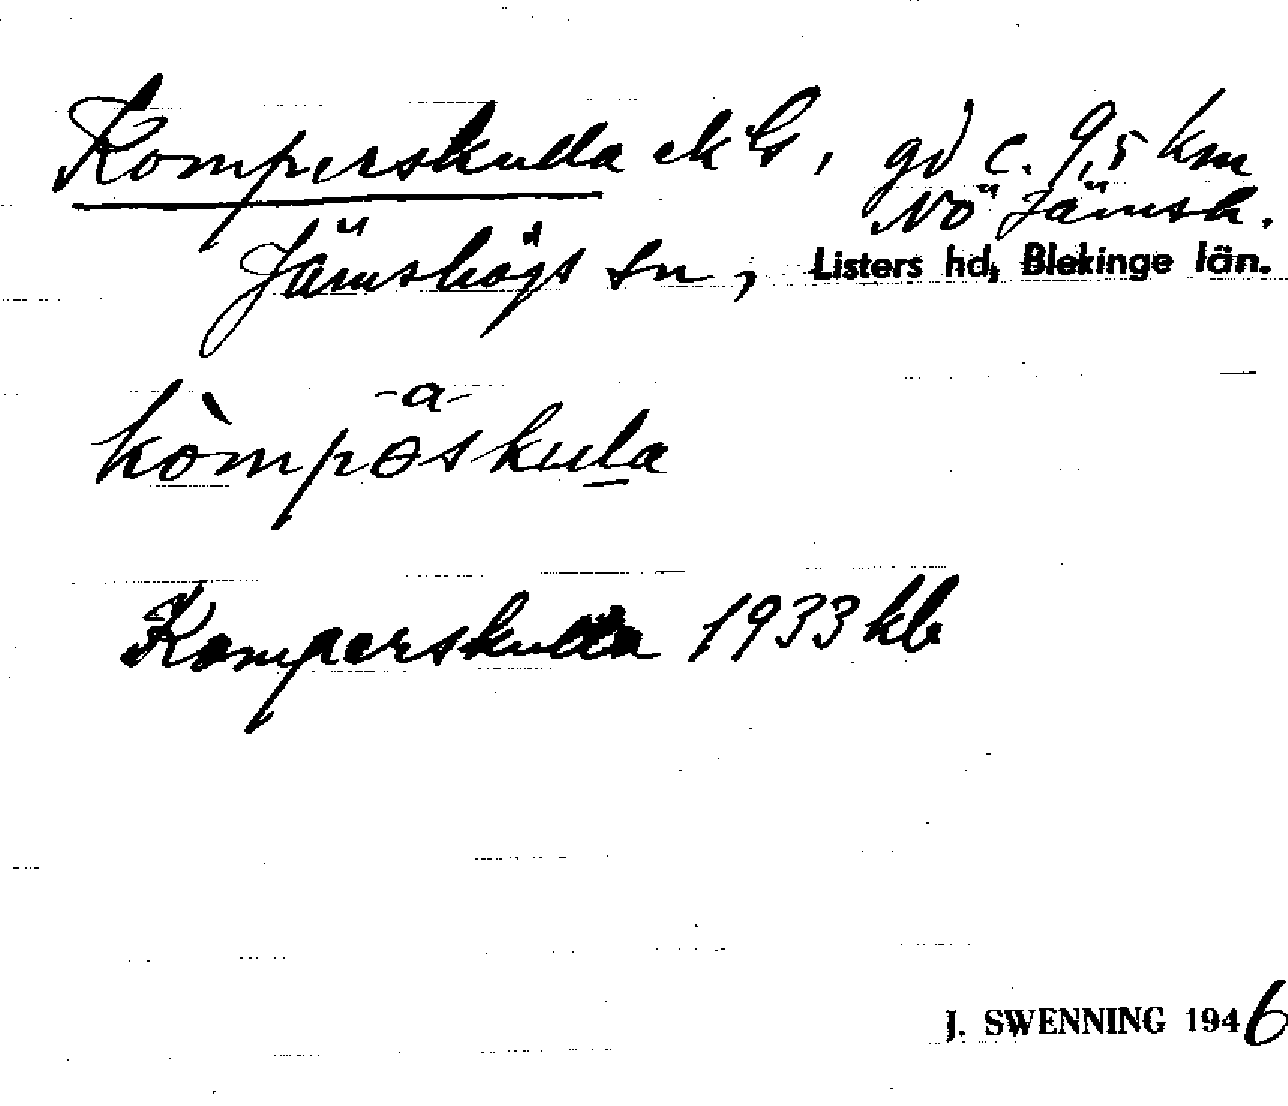 Komperskulla ekbl, gd c. 9,5 km
NÖ Jämsh.
Jämshögs sn, Listers hd, Blekinge län.
-a-
kòmpəskula
Komperskulla 1933 kb
J. SWENNING 1946